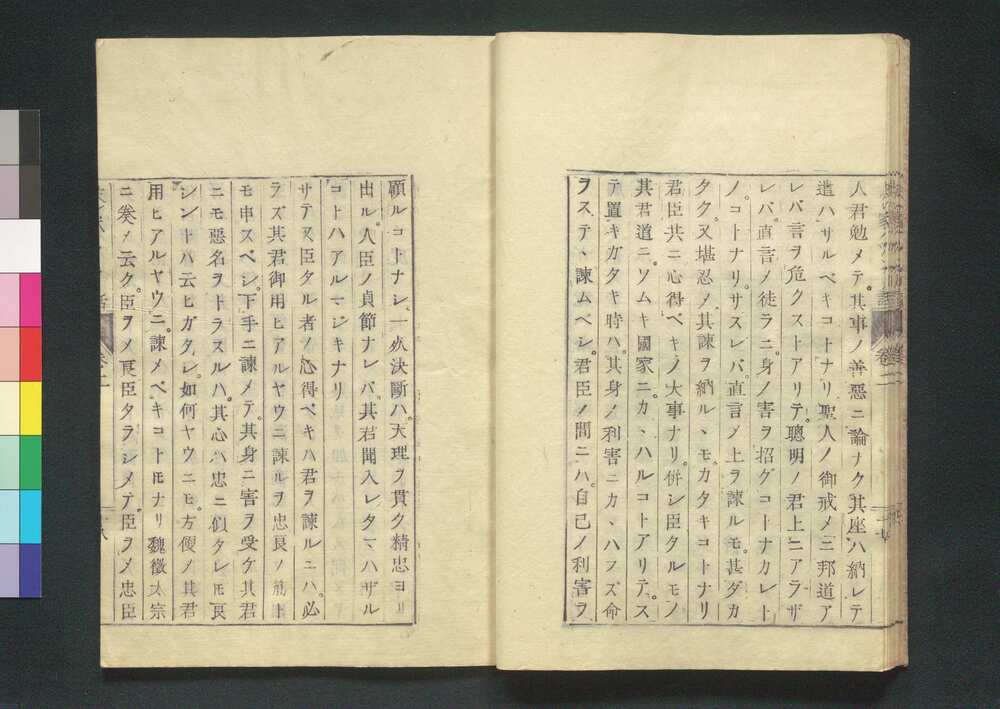 人君勉メテ。其事ノ善惡ニ論ナク其座ハ納レテ
遣ハサルベキコトナリ聖人ノ御戒メニ邦道ア
レバ言ヲ危クストアリテ。聰明ノ君上ニアラザ
レバ。直言メ徒ラニ。身ノ害ヲ招グコトナカレト
ノ。コトナリ。サスレバ。直言メ上ヲ諫ルモ。甚ダカ
タク。又堪忍メ其諫ヲ納ル丶モ。カタキコトナリ
君臣共ニ心得ベキノ大事ナリ。併シ臣タルモノ
其君道ニ。ソムキ國家ニ。カ丶ハルコトアリテ。ス
テ置キガタキ時ハ。其身ノ利害ニカ丶ハラズ命
ヲステ丶諫ムベシ。君臣ノ間ニハ。自己ノ利害ヲ
顧ルコトナシ。一必決斷ハ。大理ヲ貫ク精忠ヨリ
出ル。人臣ノ貞節ナレバ。其君聞入レタマハザル
コトハアルマジキナリ
サテ又臣タル者ノ心得ベキハ君ヲ諫ルニハ。必
ラズ其君御用ヒアルヤウニ諫ルヲ忠良ノ筋ト
モ申スベシ。下手ニ諫メテ。其身ニ害ヲ受ケ其君
ニモ惡名ヲトラスルハ。其心ハ忠ニ似タレモ良
シントハ云ヒガタシ。如何ヤウニモ。方便メ其君
用ヒアルヤウニ。諫メベキコトモナリ魏徴太宗
ニ奏メ云ク。臣ヲメ良臣タラシメテ。臣ヲメ忠臣